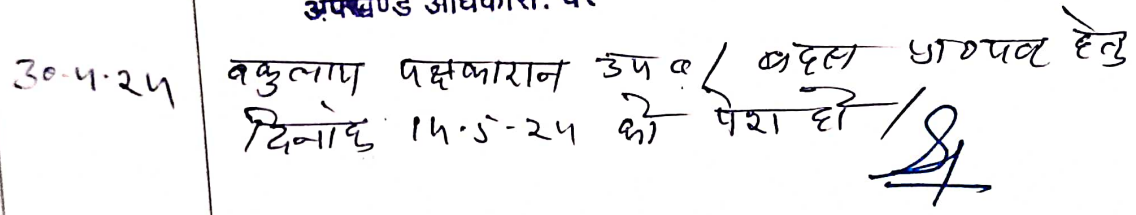 उपखण्ड अधिकारी.
30.4.24 वकुलाय पक्षकारान उप० / बहस प्रा०पत्र हेतु
दिनांक 14.5-24 को पेश हो /